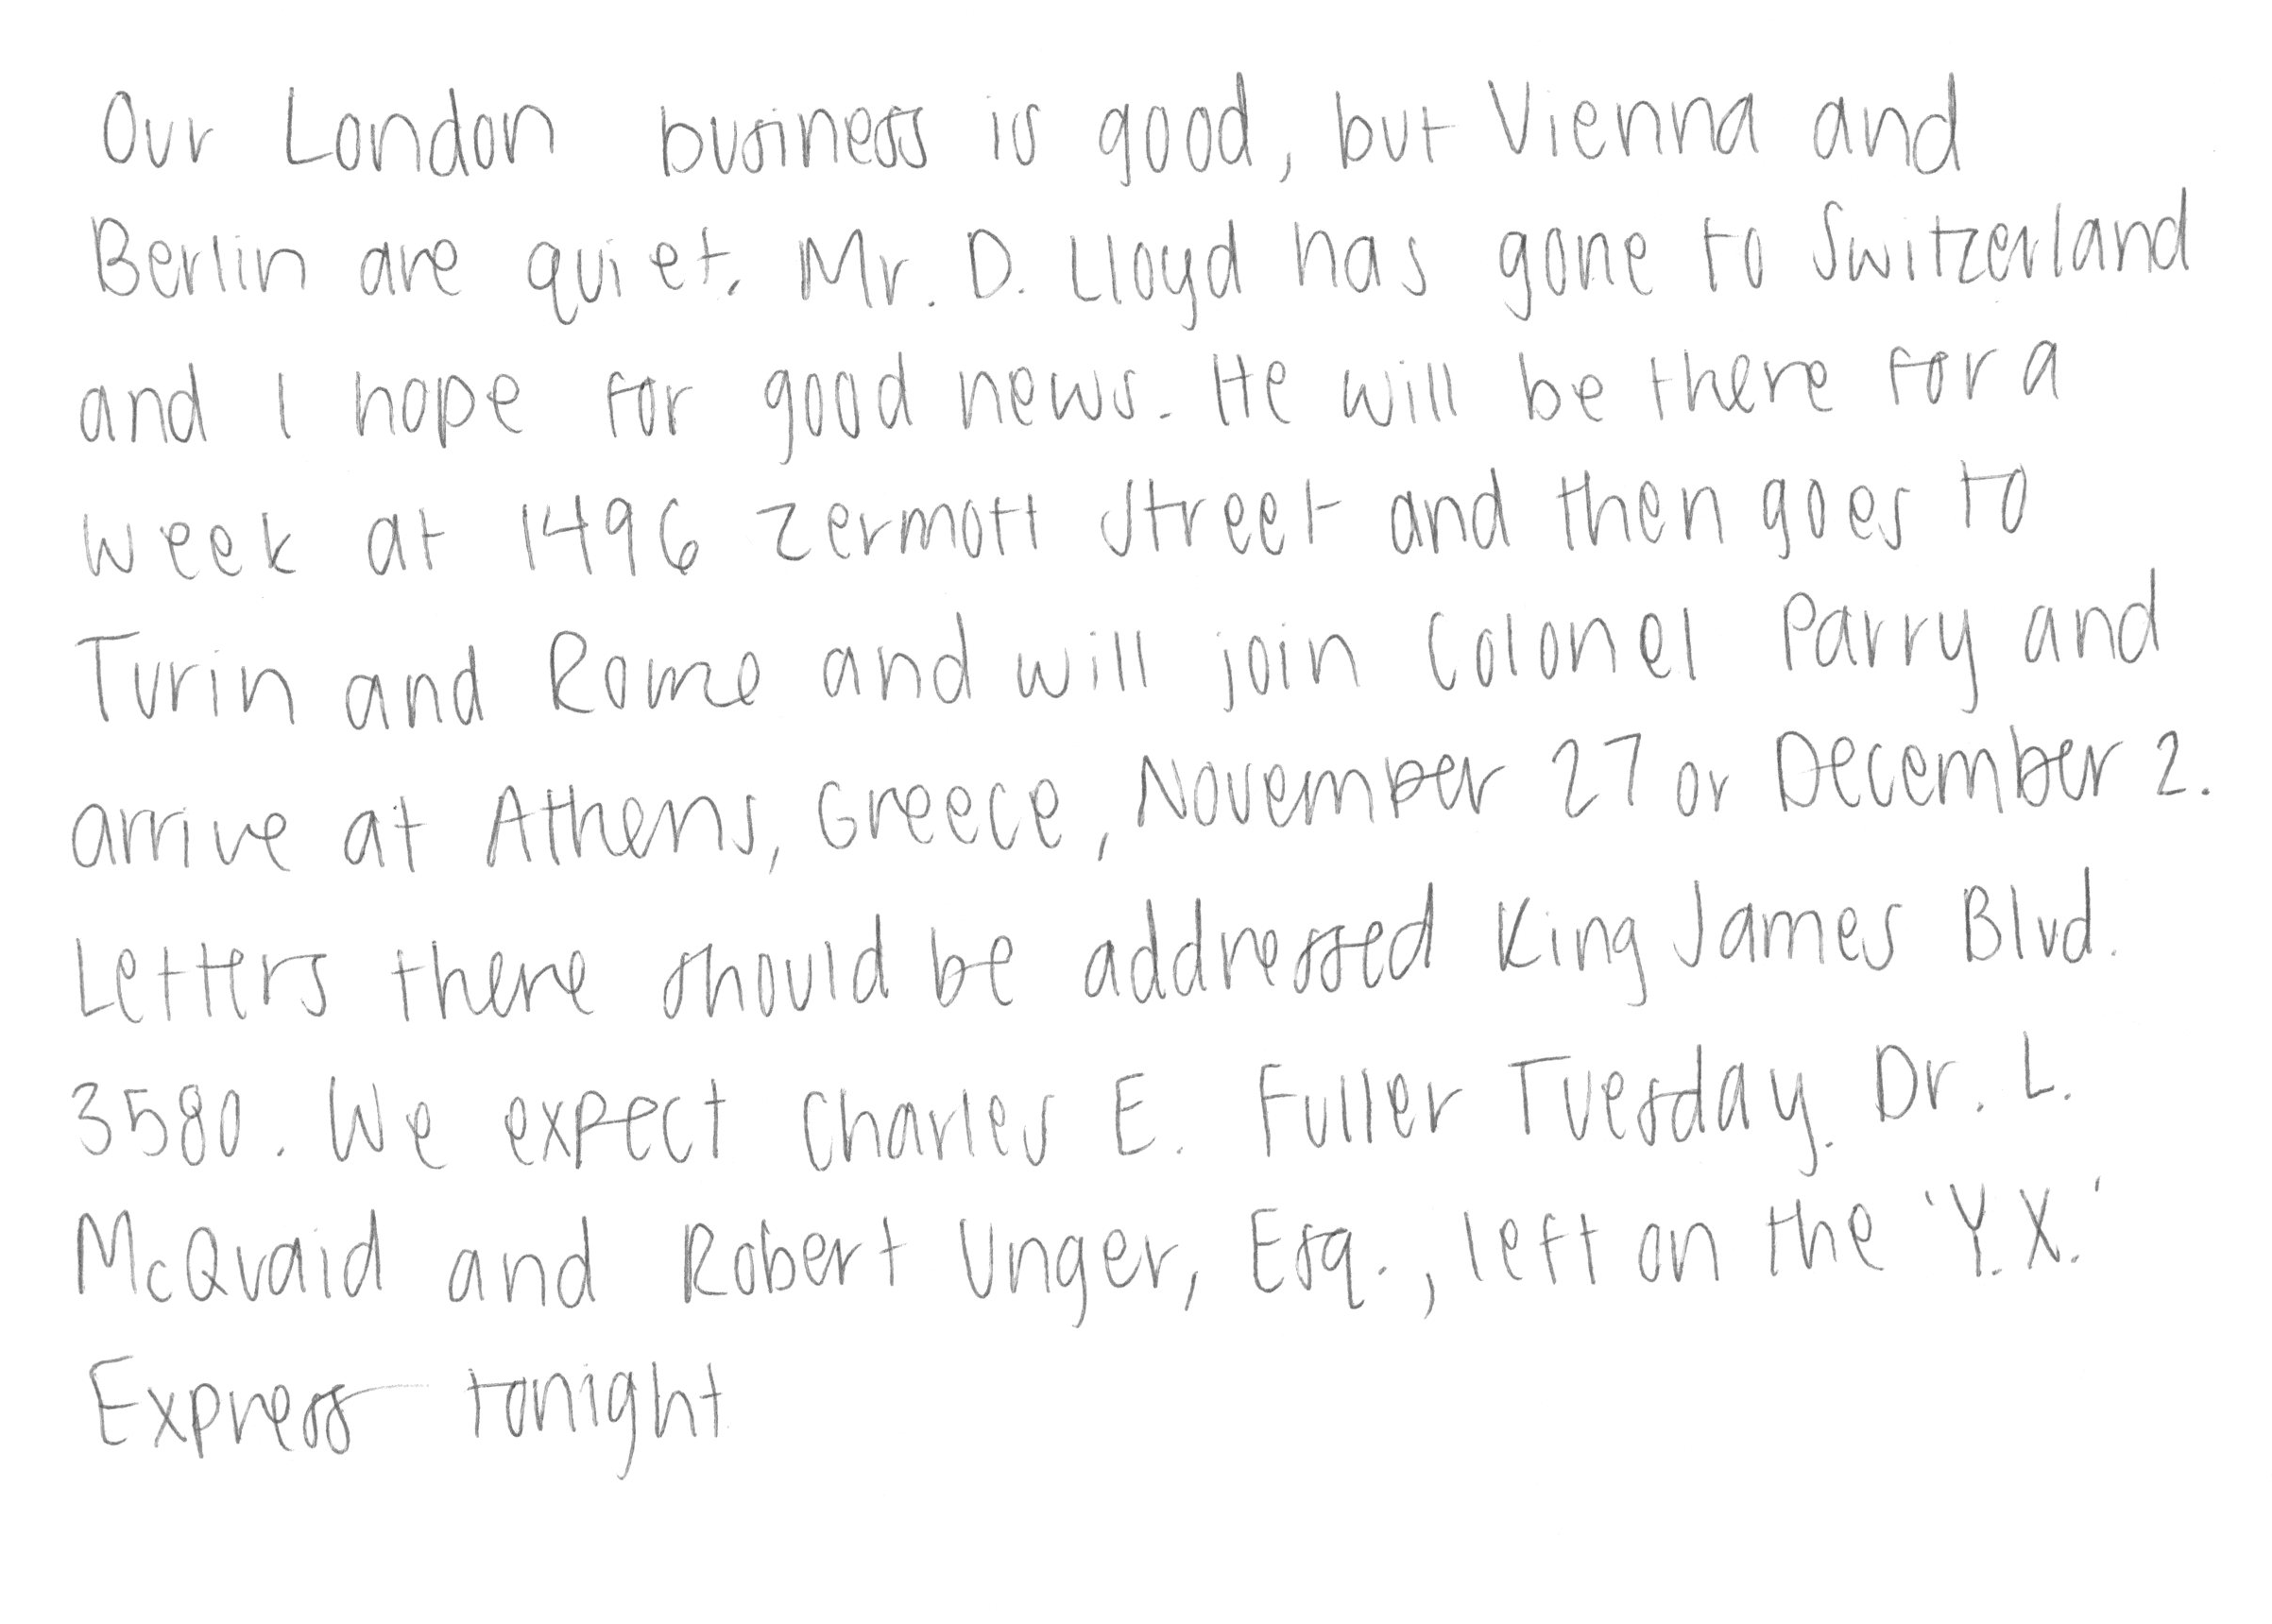 Our London business is good, but Vienna and
Berlin are quiet. Mr. D. Lloyd has gone to Switzerland
and I hope for good news. He will be there for a
week at 1496 Zermott Street and then goes to
Turin and Rome and will join Colonel Parry and
arrive at Athens, Greece, November 27 or December 2.
Letters there should be addressed King James Blvd.
3580. We expect Charles E. Fuller Tuesday. Dr. L.
McQuaid and Robert Unger, Esq., left on the 'Y.X.'
Express tonight